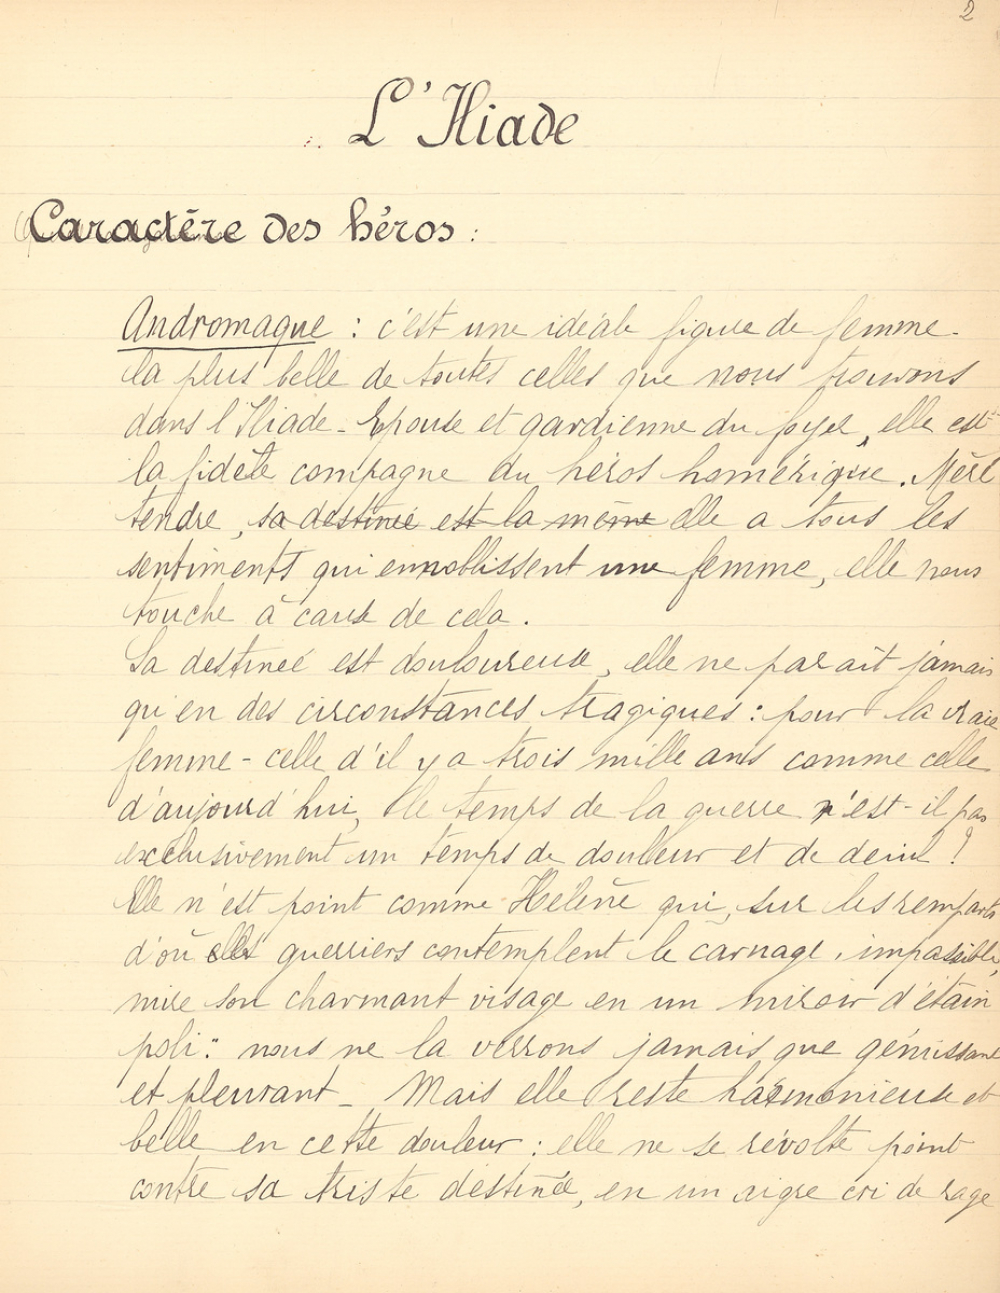 2
L'Iliade
Caractère des héros :
Andromaque : c'est une idéale figure de femme -
la plus belle de toutes celles que nous trouvons
dans l'Iliade - Epouse et gardienne du foyer, elle est
la fidèle compagne du héros homérique. Mère
tendre, sa destinée est la même elle a tous les
sentiments qui ennoblissent une femme, elle nous
touche à cause de cela.
Sa destinée est douloureuse, elle ne parait jamais
qu'en des circonstances tragiques : pour la vraie
femme - celle d'il y a trois mille ans comme celle
d'aujourd'hui, le temps de la guerre n'est-il pas
exclusivement un temps de douleur et de deuil ?
Elle n'est point comme Hélène qui, sur les remparts
d'où les guerriers contemplent le carnage, impassible,
mire son charmant visage en un miroir d'étain
poli : nous ne la verrons jamais que gémissant
et pleurant - Mais elle reste harmonieuse et
belle en cette douleur : elle ne se révolte point
contre sa triste destinée, en un aigre cri de rage